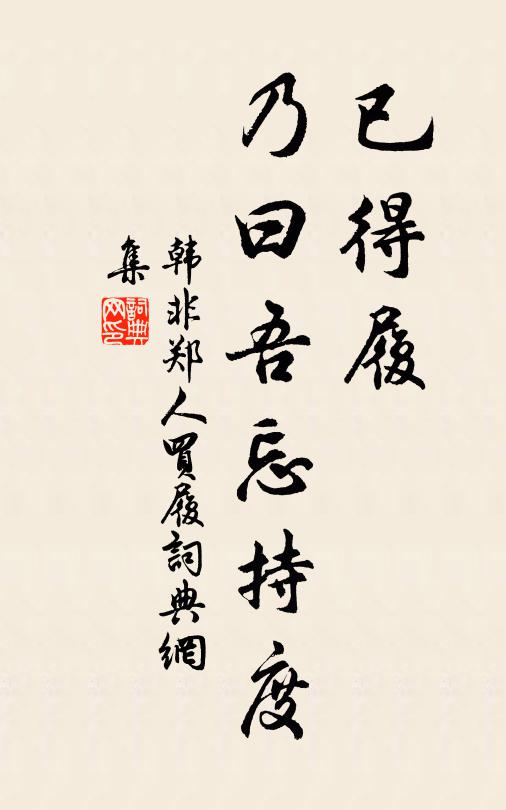 已得履
乃曰吾忘持度
韩非郑人買履詞典網
集
詞典
网印